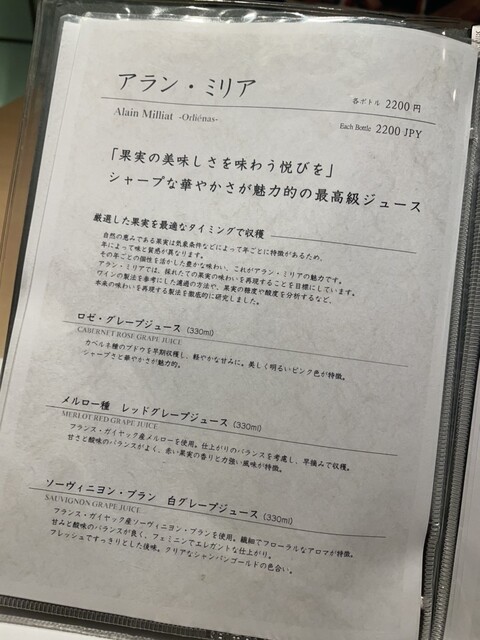 アラン・ミリア
各ボトル 2200円
Alain Milliat -Orliénas-
Each Bottle 2200 JPY
「果実の美味しさを味わう悦びを」
シャープな華やかさが魅力的の最高級ジュース
厳選した果実を最適なタイミングで収穫
自然の恵みである果実は気象条件などによって年ごとに特徴があるため、
年によって味と質感が異なります。
その年ごとの個性を活かした豊かな味わい、これがアラン・ミリアの魅力です。
アラン・ミリアでは、採れたての果実の味わいを再現することを目標にしています。
ワインの製法を参考にした濾過の方法や、果実の糖度や酸度を分析するなど、
本来の味わいを再現する製法を徹底的に研究しました。
ロゼ・グレープジュース (330ml)
CABERNET ROSE GRAPE JUICE
カベルネ種のブドウを早期収穫し、軽やかな甘みに。美しく明るいピンク色が特徴。
シャープさと華やかさが魅力的。
メルロー種 レッドグレープジュース (330ml)
MERLOT RED GRAPE JUICE
フランス・ガイヤック産メルローを使用。仕上がりのバランスを考慮し、早摘みで収穫。
甘さと酸味のバランスがよく、赤い果実の香りと力強い風味が特徴。
ソーヴィニヨン・ブラン 白グレープジュース (330ml)
SAUVIGNON GRAPE JUICE
フランス・ガイヤック産ソーヴィニヨン・ブランを使用。繊細でフローラルなアロマが特徴。
甘みと酸味のバランスが良く、フェミニンでエレガントな仕上がり。
フレッシュですっきりとした後味。クリアなシャンパンゴールドの色合い。